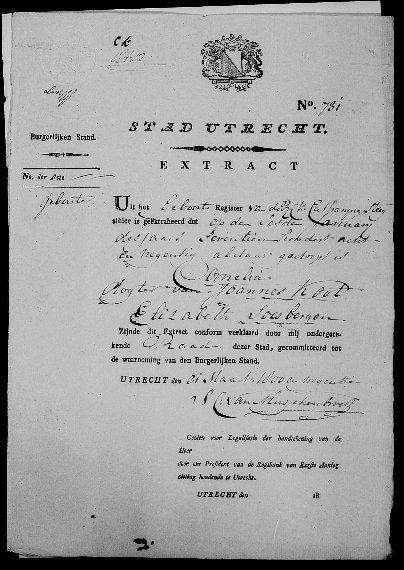 No. 731
STAD UTRECHT.
Burgerlijken Stand.
EXTRACT
No. der Acte
Geboorte
Uit het Geboorte Register
alhier is geëxtraheerd dat op den Sesde January
des jaars Seventien honderd acht
en negentig aldaar gedoopt is
Cornelia
Dogter van Joannes Koot
Elizabeth
Zijnde dit Extract conform verklaard door mij ondergete-
kende Raad dezer Stad, gecommitteerd tot
de waarneming van den Burgerlijken Stand.
UTRECHT den 21 Maart
van Musschenbroek
Gezien voor Legalisatie der handtekening van de
Heer
door ons President van de Regtbank van Eersten Aanleg
zitting houdende te Utrecht.
UTRECHT den 18